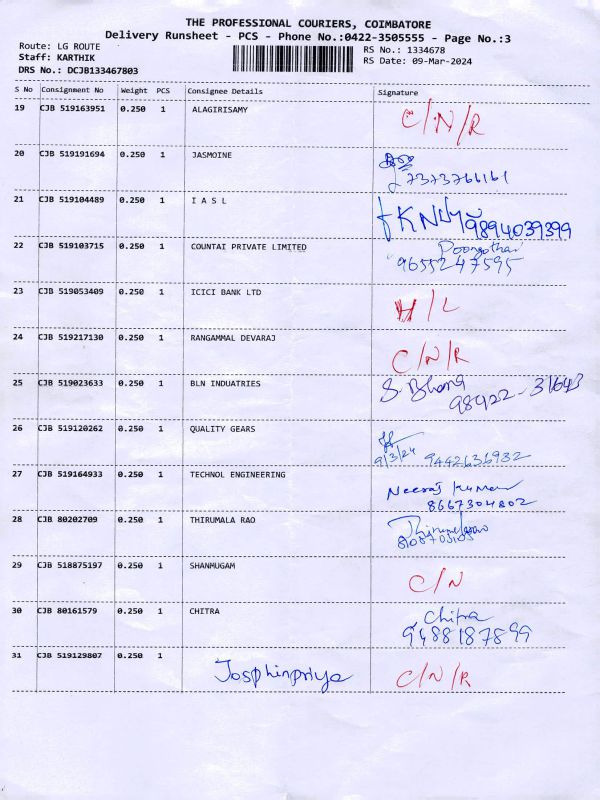 THE PROFESSIONAL COURIERS, COIMBATORE
Delivery Runsheet - PCS - Phone No.:0422-3505555 - Page No.:3
Route: LG ROUTE
RS No.: 1334678
Staff: KARTHIK
RS Date: 09-Mar-2024
DRS No.: DCJB133467803
S No Consignment No Weight PCS Consignee Details Signature
19 CJB 519163951 0.250 1 ALAGIRISAMY C/N/R
20 CJB 519191694 0.250 1 JASMOINE 7373766161
21 CJB 519104489 0.250 1 I A S L 9894039399
22 CJB 519103715 0.250 1 COUNTAI PRIVATE LIMITED Poongothai
9655247595
23 CJB 519053409 0.250 1 ICICI BANK LTD H/L
24 CJB 519217130 0.250 1 RANGAMMAL DEVARAJ C/N/R
25 CJB 519023633 0.250 1 BLN INDUATRIES S. Bhana
98422-31643
26 CJB 519120262 0.250 1 QUALITY GEARS
9/3/24 9442636932
27 CJB 519164933 0.250 1 TECHNOL ENGINEERING Neeraj Kumar
8667304802
28 CJB 80202709 0.250 1 THIRUMALA RAO Thirumalarao
29 CJB 518875197 0.250 1 SHANMUGAM C/N
30 CJB 80161579 0.250 1 CHITRA Chitra
9488187899
31 CJB 519129807 0.250 1 Josphinpriya C/N/R